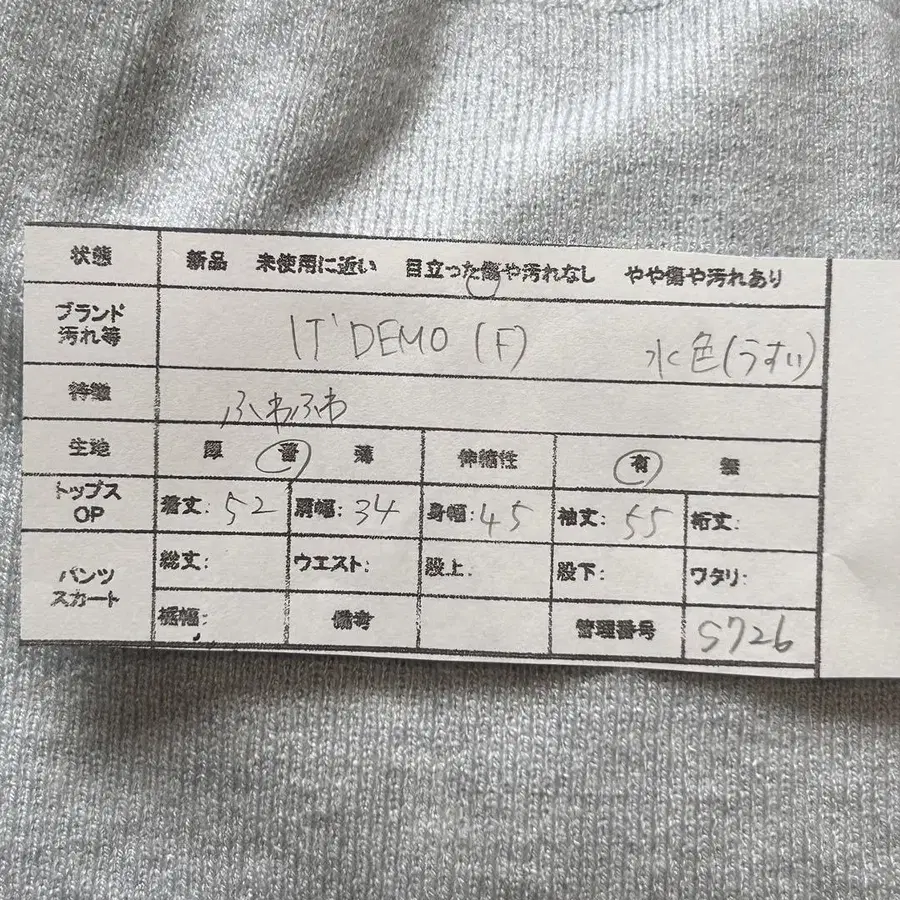 状態 新品 未使用に近い 目立った傷や汚れなし やや傷や汚れあり
ブランド
汚れ等 IT'DEMO (F) 水色(うすい)
特徴 ふわふわ
生地 厚 普 薄 伸縮性 有 無
トップス
OP 着丈: 52 肩幅: 34 身幅: 45 袖丈: 55 裄丈:
パンツ
スカート 総丈: ウエスト: 股上: 股下: ワタリ:
裾幅: 備考 管理番号 S726